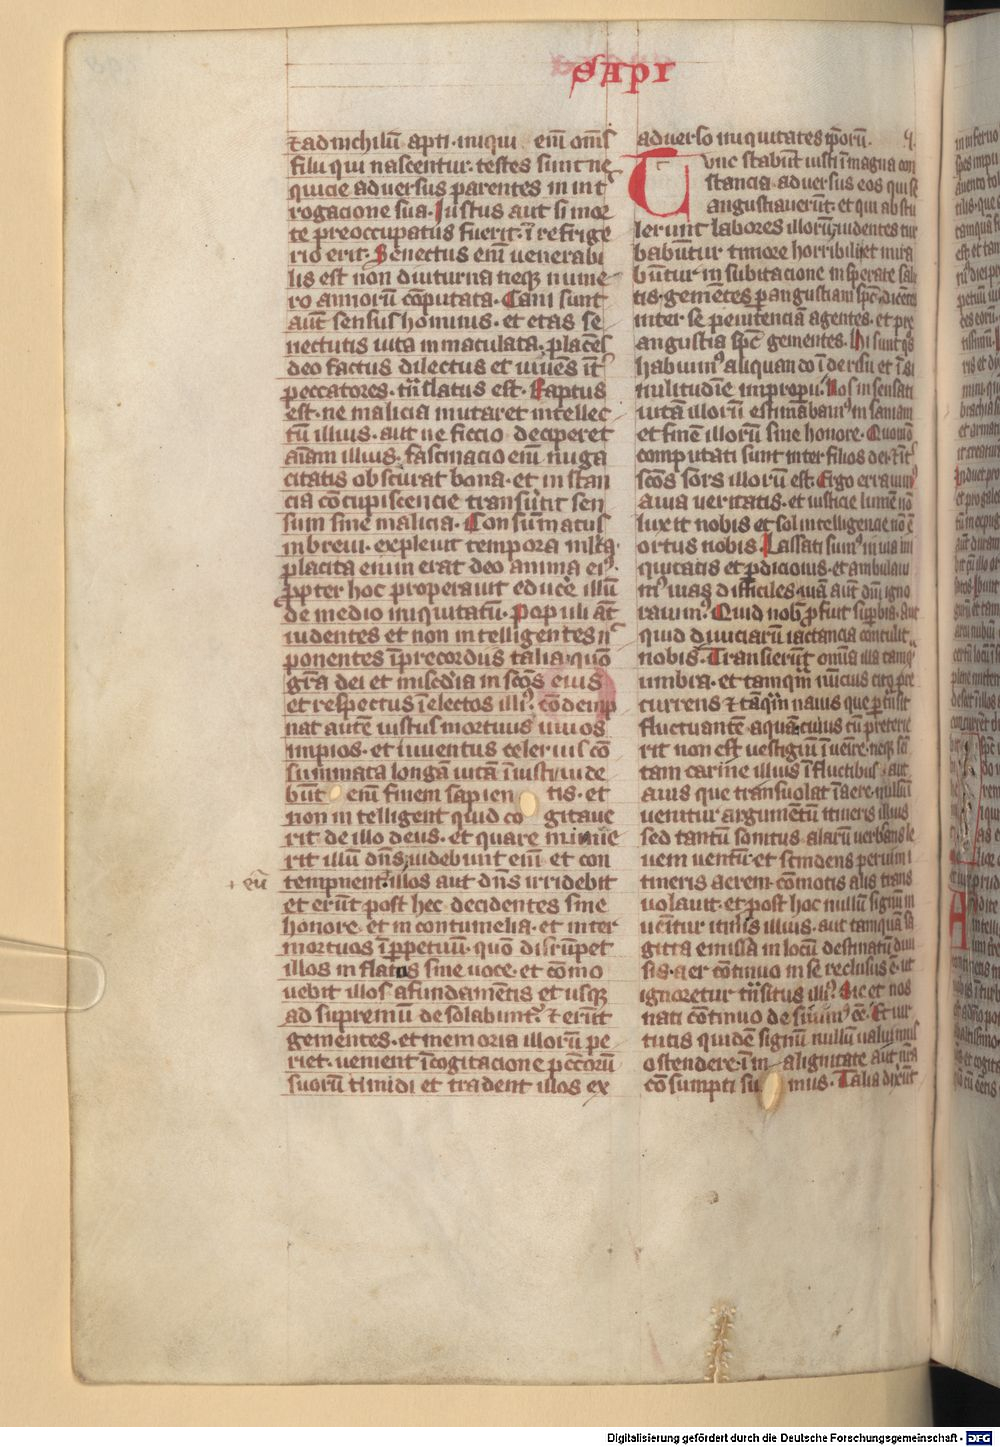 SAPI
⁊ ad nichilū apti. iniqui . eniͫ om̄s
filii qui nascentur. testes sunt ne
quicie aduersus parentes in int̾
rogacione sua. Iustus aut si mor
te preoccupatus fuerit. ī refrige
rio erit. Senectus eni ͫ uenerabi
lis est non diuturna neq; nume
ro annorū cōputata. Cani sunt
aut̄ sensus hominis. et etas se
nectutis uita inmaculata. placēs
deo factus dilectus et uiuēs īt̾
peccatores. tn̄slatus est. Raptus
est. ne malicia mutaret intellec
tū illius. aut ne ficcio deciperet
aīam illius. fascinacio eniͫ nuga
citatis obscurat bona. et instan
cia cōcupiscencie transu̾tit sen
sum sine malicia. Consūmatus
inbreui. expleuit tempora mlta.
placita enim erat deo anima ei᷒.
ꝓpter hoc properauit educe̾ illū
de medio iniquitatū. Populi aūt
uidentes et non intelligentes n̄
ponentes īprecordiis talia. quō
gr̄a dei et misc̾dia in sc̄os eius
et respectus ī electos illi᷒. cōdemp
nat autē iustus mortuus uiuos
impios. et iuuentus celerius cō
summata longā uitā īiusti. uide
būt eniͫ finem sapien tis. et
non intelligent quid co gitaue
rit de illo deus. et quare minue
rit illū dn̄s. uidebunt eniͫ et con
tempnent. illos aut dn̄s irridebit
+ eū
et erūt post hec decidentes sine
honore. et in contumelia. et inter
mortuos ī ꝑpetuū. quō disrūpet
illos inflatos sine uoce. et como
uebit illos afundamētis et usq;
ad supremū desolabunt̾. ⁊ erūt
gementes. et memoria illorū pe
riet. uenient ī cogitacione pc̄corū
suorū timidi et tradent illos ex
aduerso iniquitates ip̄orū. 
Tunc stabūt iusti ī magna con
stancia aduersus eos qui se
angustiauerūt. et qui abstu
lerunt labores illorū. uidentes tur
babūtur timore horribili. et mira
būtur in subitacione insperate salu
tis. gemētes p angustiam sp̄c. dicētes
inter se penitenciā agentes. et pre
angustia sp̄c gementes. Hi sunt q̄s
habuim᷒ aliquando ī derisū et ī si
militudīe improperii. Nos insensati
uitā illorū estimabam᷒ insaniam
et finē illorū sine honore. Quomō
computati sunt inter filios dei. ⁊ īt̾
sc̄os sors illorū est. Ergo errauim᷒
auia ueritatis. et iusticie lumē nō
luxit nobis et sol intelligencie nō ē
ortus nobis. Lassati sum᷒ in uia ini
quitatis et ꝑdicionis. et ambulaui
m᷒ uias difficiles. uiā aut dn̄i igno
rauim᷒. Quid nob̄ ꝓfuit suꝑbia. aut
quid diuiciarū iactancia cōtulit
nobis. Transierūt omīa illa tamq̄
umbra. et tamqm̄ nuncius citꝰ. pre
currens ⁊ tāqm̄ nauis que ꝑtn̄sit
fluctuantē aquā. cuius cū preterie
rit non est uestigiū īuenire. neq; se
tam carine illius ī fluctibus. aut
auis que transuolat ī aere. nullū
uenitur argumētū itineris illius
sed tantū sonitus alarū uerberās le
uem uentū. et scindens per uim i
tineris aerem. cōmotis alis trans
uolauit. et post hoc nullū signū in
uēitur itin̄is illius. aut tamquā sa
gitta emissa in locū destinatū diui
sus. aer cōtinuo in se reclusus ē. ut
ignoretur tn̄situs illi᷒. Sic et nos
nati cōtinuo desiuim᷒ ēe. Et uir
tutis quidē signū nullū ualuimus
ostendere. ī m alignitate aut nr̄a
cōsumpti su mus. Talia dixerūt
Digitalisierung gefördert durch die Deutsche Forschungsgemeinschaft - DFG